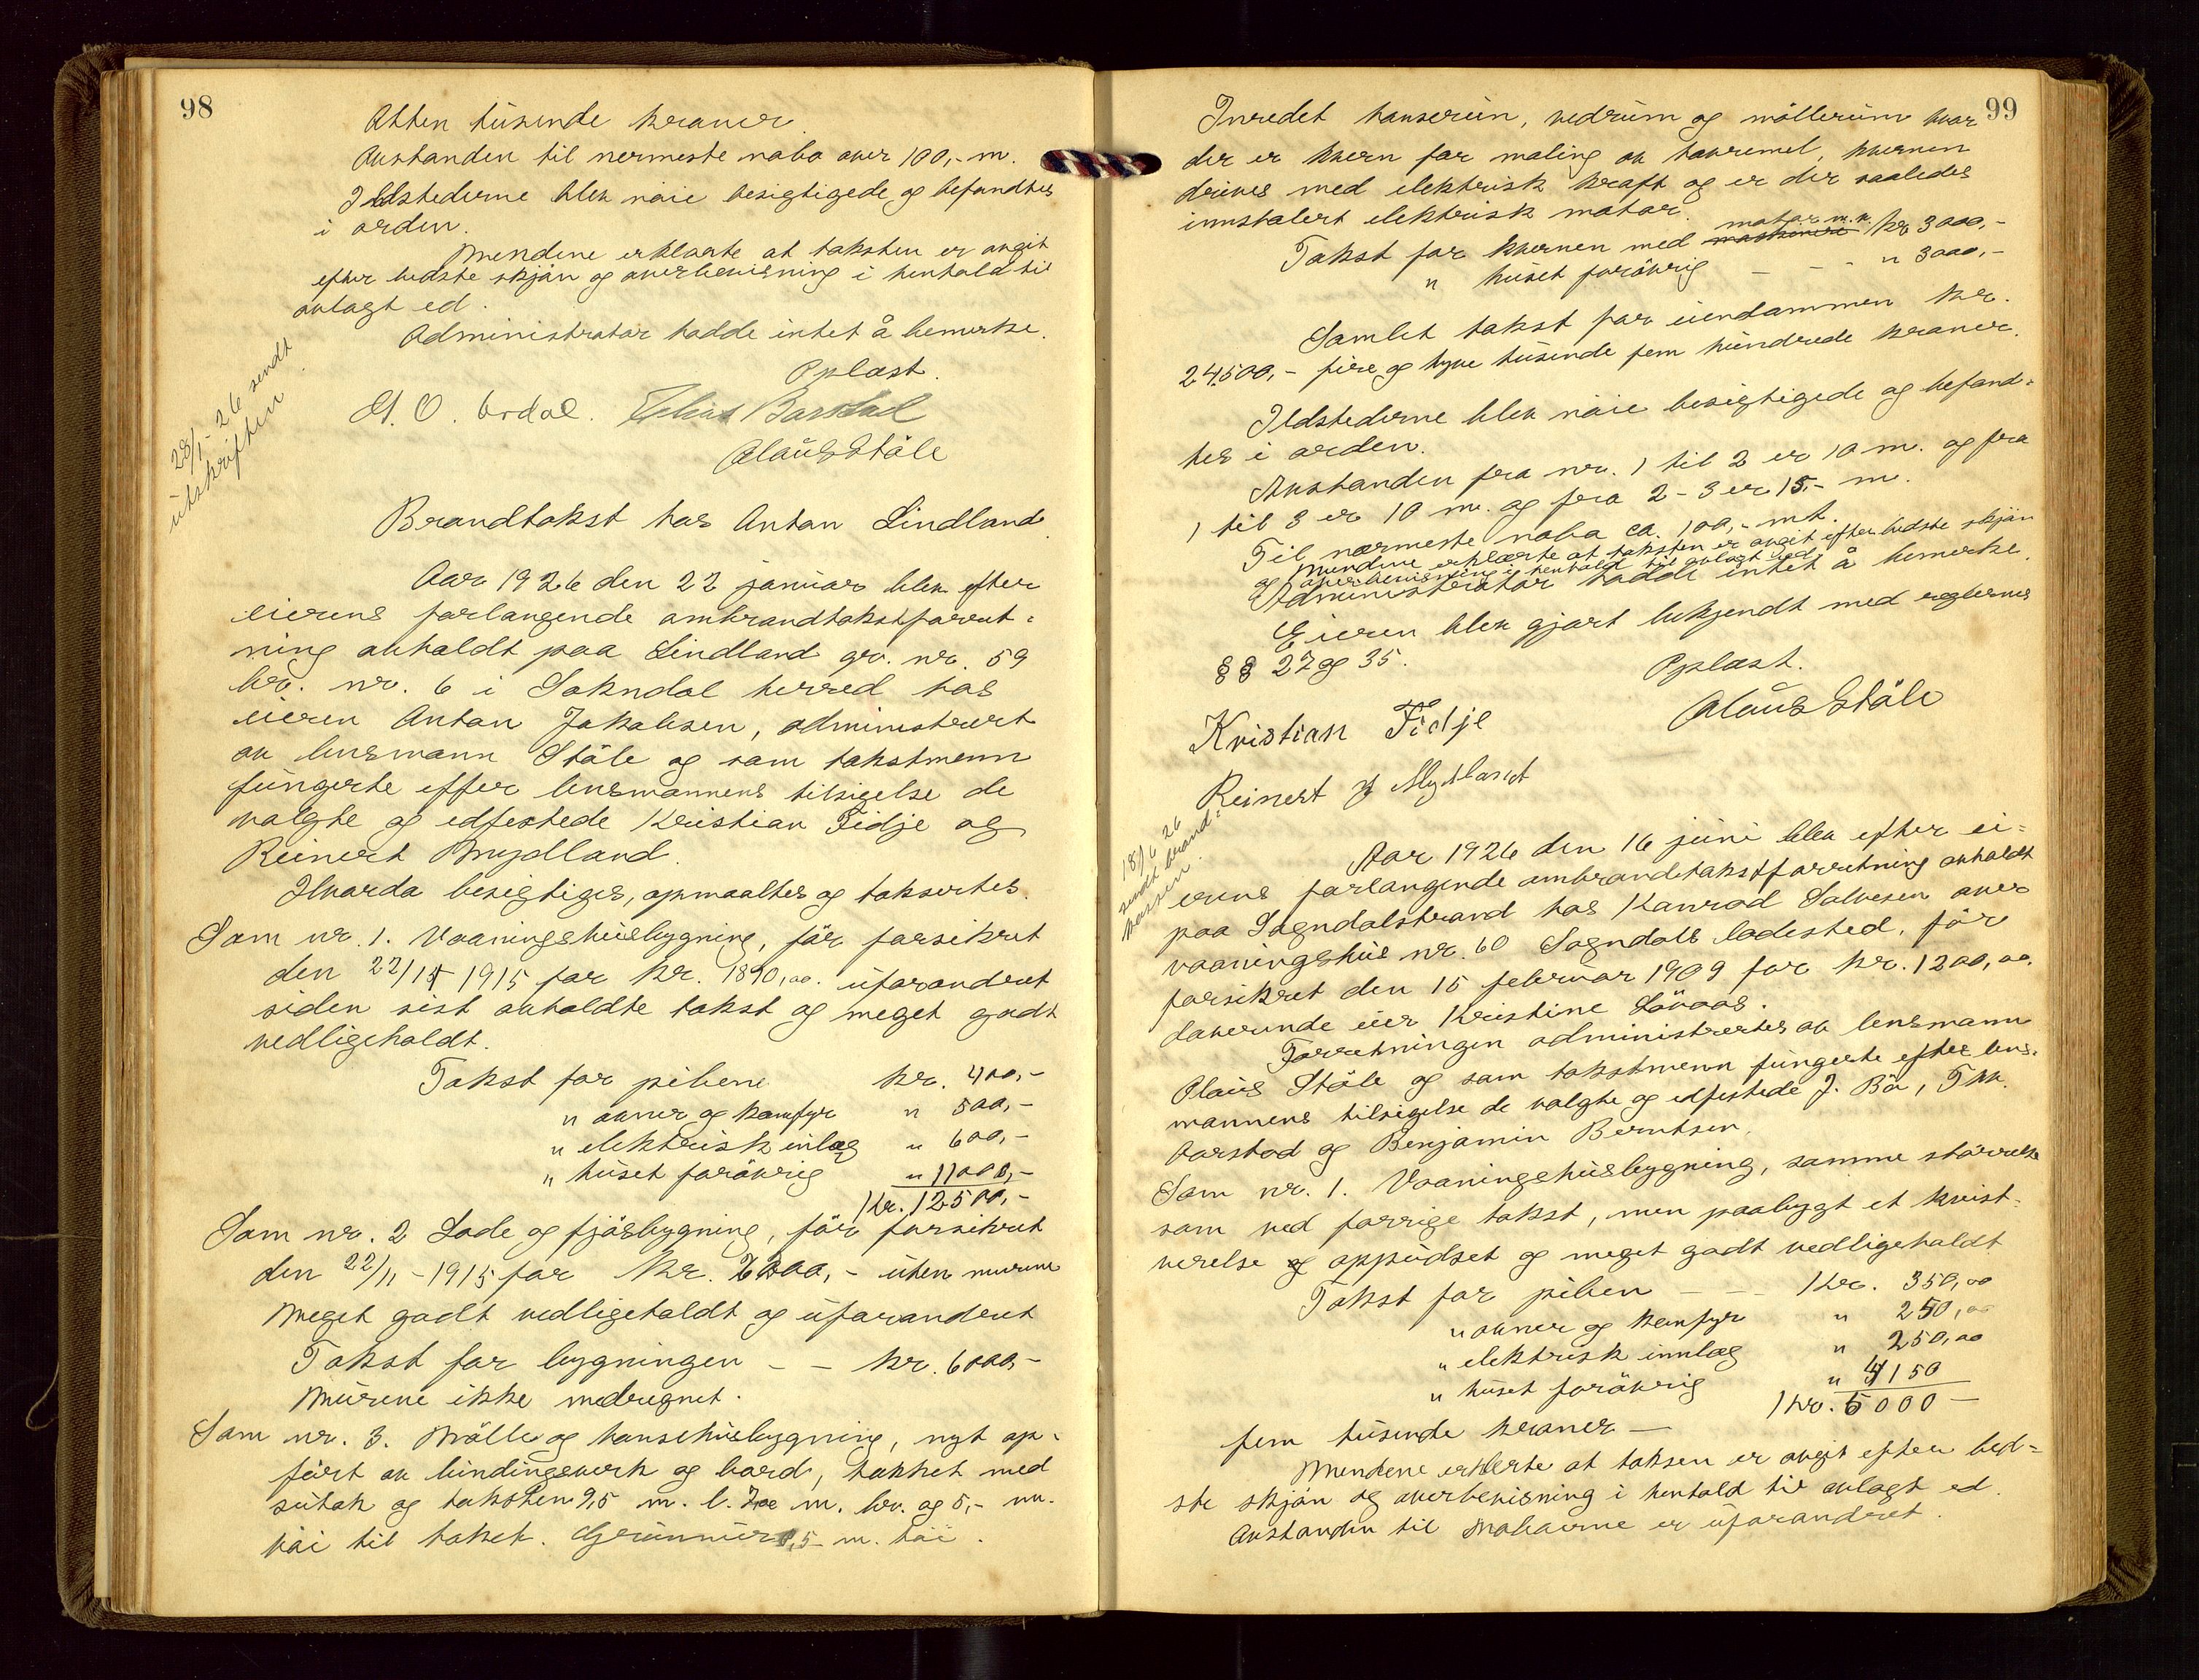 98
Atten tusende kroner.
Avstanden til nermeste nabo over 100,- m.
Ildstederne blev nöie besigtigede og befandtes
i orden.
Mendene erklærte at taksten er avgit
efter bedste skjön og overbevisning i henhold til
avlagt ed.
Administrator hadde intet å bemerke.
Oplæst.
Elias Barstad
Olaus Ståle
23/1-26 sendt
utskriften
Brandtakst hos Anton Lindland
Aar 1926 den 22 januar blev efter
eierens forlangende ombrandtakstforret-
ning avholdt paa Lindland gr. nr. 59
br. nr. 6 i Sokndal herred hos
eieren Anton Jakobsen, administrert
av lensmann Ståle og som takstmenn
fungerte efter lensmannens tilsigelse de
valgte og edfestede Kristian Fidje og
Reinert Mydland.
Hvorda besigtiges, opmaaltes og taksertes.
Som nr. 1. Vaaningshusbygning, för forsikret
den 22/11 1915 for kr. 1890,00. uforandret
siden sist avholdte takst og meget godt
vedligeholdt.
Takst for pibene kr. 400,-
" ovner og komfyr " 500,-
" elektrisk inlæg " 600,-
" huset foråvrig " 11000,-
Kr. 12500,-
Som nr. 2 Lade og fjösbygning, för forsikret
den 22/11-1915 for Kr. 00,- uten murene
Meget godt vedligeholdt og uforandret
Takst for bygningen - - kr. 6000,-
Murene ikke medregnet.
Som nr. 3. Mölle og hönsehusbygning, nyt op-
fört av bindingsverk og bord, tækket med
sutak og taksten 9,5 m. l. 7,00 m. br. og 5,- m.
höi til taket. Grunnmur 0,5 m. höi.
99
Inredet hönserum, vedrum og möllerum hvor
der er kvern for maling av havremel, kvernen
drives med elektrisk kraft og er der saaledes
innstalert elektrisk motor.
motor m.v.
Takst for kvernen med maskineri kr 3000,-
" huset foråvrig - - - " 3000,-
Samlet takst for eiendommen kr.
24500,- fire og tyve tusende fem hundrede kroner.
Ildstederne blev nöie besigtigede og befand-
tes i orden.
Avstanden fra nr. 1 til 2 er 10 m. og fra
1 til 3 er 10 m. og fra 2 - 3 er 15,- m.
Til nærmeste nabo ca. 100,- mt.
Mendene erklærte at taksten er avgit efter bedste skjön
og overbevisning i henhold til avlagt ed.
Administrator hadde intet å bemerke.
Eieren blev gjort bekjendt med reglernes
§§ 27 og 35.
Oplæst.
Olaus Ståle
Kristian Fidje
Reinert Mydland
18/6 26
sendt brand-
kassen.
Aar 1926 den 16 juni blev efter ei-
erens forlangende ombrandetakstforretning avholdt
paa Sogndalstrand hos Konrad Salvesen over
vaaningshus nr. 60 Sogndals ladested, för
forsikret den 15 februar 1909 for kr. 1200,00.
daverende eier Kristine Lövaas.
Forretningen administrertes av lensmann
Olaus Ståle og som takstmenn fungerte efter lens-
mannens tilsigelse de valgte og edfestede J. Bö,
Aarstad og Benjamin Berntsen.
Som nr. 1. Vaaningshusbygning, samme störrelse
som ved forrige takst, men paabygt et kvist-
verelse og oppudset og meget godt vedligeholdt
Takst for piben - - - Kr. 350,00
" ovner og komfyr " 250,00
" elektrisk innlæg " 250,00
" huset foråvrig " 4150
Kr. 5000 -
fem tusende kroner —
Mendene erklerte at taksen er avgit efter bed-
ste skjön og overbevisning i henhold til avlagt ed.
Avstanden til naboerne er uforandret.